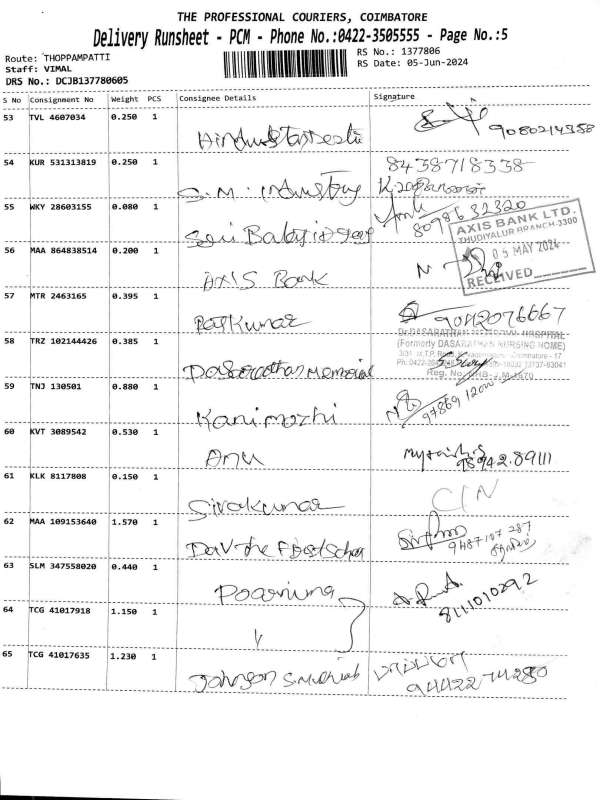 THE PROFESSIONAL COURIERS, COIMBATORE
Delivery Runsheet - PCM - Phone No.:0422-3505555 - Page No.:5
Route: THOPPAMPATTI
Staff: VIMAL
DRS No.: DCJB137780605
RS No.: 1377806
RS Date: 05-Jun-2024
S No Consignment No Weight PCS Consignee Details Signature
53 TVL 4607034 0.250 1
9080214358
54 KUR 531313819 0.250 1 S.M. industry
8438718338
55 WKY 28603155 0.080 1 Sri Balaji
8098632320
AXIS BANK LTD.
THUDIYALUR BRANCH-3300
05 MAY 2024
RECEIVED
56 MAA 864838514 0.200 1 AXIS Bank
57 MTR 2463165 0.395 1 Rajkumar
9042076667
58 TRZ 102144426 0.385 1 Dasarathan Memorial
Dr.DASARATHAN MEMORIAL HOSPITAL
(Formerly DASARATHAN NURSING HOME)
59 TNJ 130501 0.880 1 Kanimozhi
60 KVT 3089542 0.530 1 Anu
98942.89111
61 KLK 8117808 0.150 1 Sivakumar
62 MAA 109153640 1.570 1 DaV the
9487107287
63 SLM 347558020 0.440 1 Poornima
8111010292
64 TCG 41017918 1.150 1
65 TCG 41017635 1.230 1 Johnson
9442274280